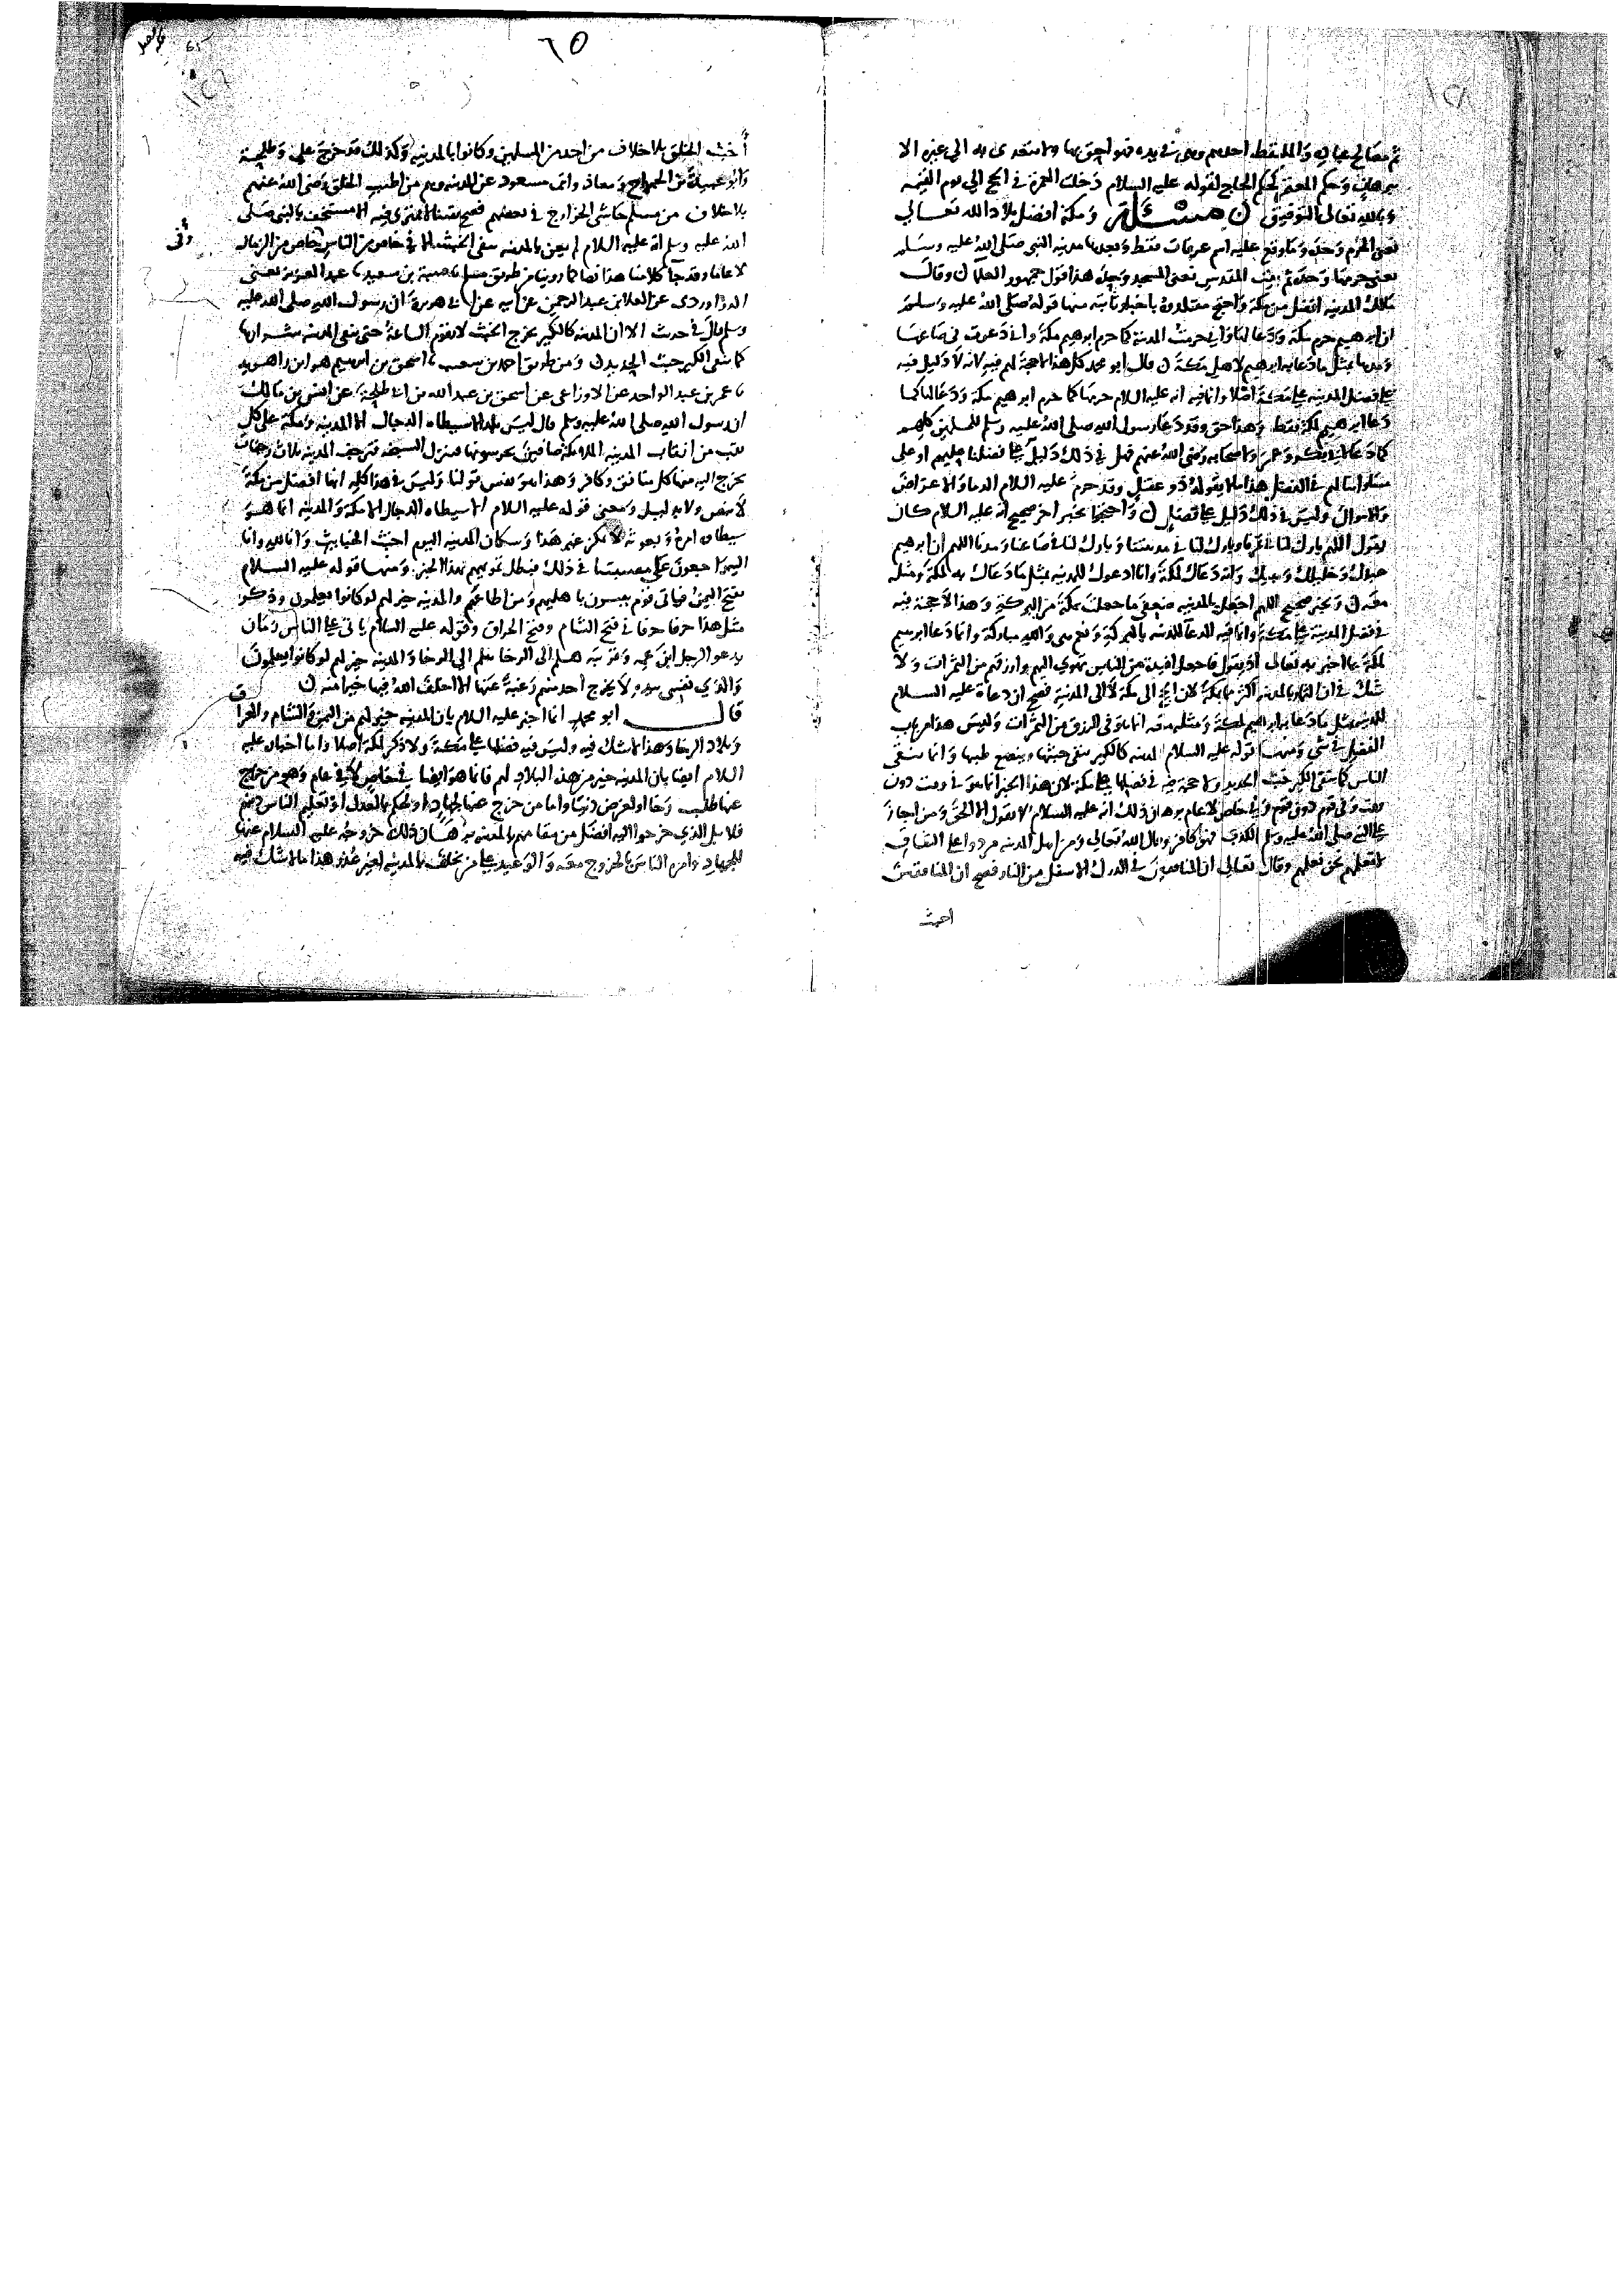 ثم مصالح عباده والملتقط احدهم وهى فى يده فهو احق بها ولا تتعدى به الى غيره الا
ببرهان وحكم المعتمر كحكم الحاج لقوله عليه السلام دخلت العمرة فى الحج الى يوم القيمة
وبالله تعالى التوفيق ن مسئلة ومكة افضل بلاد الله تعالى
نعنى الحرم وحده وما وقع عليه اسم عرفات فقط وبعدها مدينة النبى صلى الله عليه وسلم
نعنى حرمها وحده ثم بيت المقدس نعنى المسجد وحده هذا قول جمهور العلما ن وقال
مالك المدينة افضل من مكة واحتج مقلدوه باخبار ثابتة منها قوله صلى الله عليه وسلم
ان ابرهيم حرم مكة ودعا لها وانى حرمت المدينة كما حرم ابرهيم مكة وانى دعوت فى صاعها
ومدها بمثل ما دعا به ابرهيم لاهل مكة ن قال ابو محمد كل هذا لا حجة لهم فيه لانه لا دليل فيه
على فضل المدينة على مكة اصلا وانما فيه انه عليه السلام حرمها كما حرم ابرهيم مكة ودعا لها كما
دعا ابرهيم لمكة فقط وهذا حق وقد دعا رسول الله صلى الله عليه وسلم للمسلمين كلهم
كما دعا لابى بكر وعمر ولاصحابه رضى الله عنهم فهل فى ذلك دليل على فضلنا عليهم او على
مساواتنا لهم فى الفضل هذا ما لا يقوله ذو عقل وقد حرم عليه السلام الدما والاعراض
والاموال وليس فى ذلك دليل على فضل ن واحتجوا بخبر اخر صحيح انه عليه السلام كان
يقول اللهم بارك لنا فى تمرنا وبارك لنا فى مدينتنا وبارك لنا فى صاعنا ومدنا اللهم ان ابرهيم
عبدك وخليلك ونبيك وانه دعاك لمكة وانا ادعوك للمدينة بمثل ما دعاك به لمكة ومثله
معه ن وبخبر صحيح اللهم اجعل بالمدينة ضعفى ما جعلت بمكة من البركة وهذا لا حجة فيه
فى فضل المدينة على مكة وانما فيه الدعا للمدينة بالبركة ونعم هى والله مباركة وانما دعا ابرهيم
لمكة بما اخبر به تعالى اذ يقول فاجعل افيدة من الناس تهوى اليهم وارزقهم من الثمرات ولا
شك فى ان الثمار بالمدينة اكثر منها بمكة لان الى مكة لا الى المدينة فصح ان دعاه عليه السلام
للمدينة بمثل ما دعا به ابرهيم لمكة ومثله معه انما هو فى الرزق من الثمرات وليس هذا من باب
الفضل فى شى ومنها قوله عليه السلام المدينة كالكير تنفى خبثها وينصع طيبها وانما تنفى
الناس كما ينفى الكير خبث الحديد ولا حجة فيه فى فضلها على مكة لان هذا الخبر انما هو فى وقت دون
وقت وفى قوم دون قوم وفى خاص لا عام برهان ذلك انه عليه السلام لا يقول الا الحق ومن اجاز
على النبى صلى الله عليه وسلم الكذب فهو كافر وقال الله تعالى ومن اهل المدينة مردوا على النفاق
لا تعلمهم نحن نعلمهم وقال تعالى ان المنافقين فى الدرك الاسفل من النار فصح ان المنافقين
اخبث
٦٥
اخبث الخلق بلا خلاف من احد من المسلمين وكانوا بالمدينة وكذلك قد خرج على وطلحة
وابو عبيدة بن الجراح ومعاذ وابن مسعود عن المدينة وهم من اطيب الخلق رضى الله عنهم
بلا خلاف من مسلم حاشى الخوارج فى بعضهم فصح يقينا لا يمترى فيه الا مستخف بالنبى صلى
الله عليه وسلم انه عليه السلام لم يعن بالمدينة تنفى الخبث الا فى خاص من الناس خاص من الزمان
لا عاما وقد جا كلامنا هذا نصا كما روينا من طريق مسلم نا قتيبة بن سعيد نا عبد العزيز يعنى
الدراوردى عن العلا بن عبد الرحمن عن ابيه عن ابى هريرة ان رسول الله صلى الله عليه
وسلم قال فى حديث الا ان المدينة كالكير يخرج الخبث لا تقوم الساعة حتى تنفى المدينة شرارها
كما ينفى الكير خبث الحديد ن ومن طريق احمد بن شعيب نا اسحق بن ابرهيم هو ابن راهويه
نا عمر بن عبد الواحد عن الاوزاعى عن اسحق بن عبد الله بن ابى طلحة عن انس بن مالك
ان رسول الله صلى الله عليه وسلم قال ليس بلد الا سيطاه الدجال الا المدينة ومكة على كل
نقب من انقاب المدينة الملائكة صافين يحرسونها فينزل السبخة فترجف المدينة ثلاث رجفات
يخرج اليه منها كل منافق وكافر وهذا هو نفس قولنا وليس فى هذا كله انها افضل من مكة
لا بنص ولا بدليل ومعنى قوله عليه السلام الا سيطاه الدجال الا مكة والمدينة انما هو
سيطاه امره وبعوثه لا يمكن غير هذا وسكان المدينة اليوم اخبث الخبايث وانا لله وانا
اليه راجعون على مصيبتنا فى ذلك فبطل تمويههم بهذا الخبر ومنها قوله عليه السلام
تفتح اليمن فياتى قوم يبسون باهليهم ومن اطاعهم والمدينة خير لهم لو كانوا يعلمون وذكر
مثل هذا حرفا حرفا فى فتح الشام وفتح العراق وقوله عليه السلام ياتى على الناس زمان
يدعو الرجل ابن عمه وقريبه هلم الى الرخا هلم الى الرخا والمدينة خير لهم لو كانوا يعلمون
والذى نفسى بيده لا يخرج احد منهم رغبة عنها الا اخلف الله فيها خيرا منه ن
قال ابو محمد انما اخبر عليه السلام بان المدينة خير لهم من اليمن والشام والعراق
وبلاد الرخا وهذا لا شك فيه وليس فيه فضلها على مكة ولا ذكر لمكة اصلا واما اخباره عليه
السلام ايضا بان المدينة خير من هذه البلاد لهم فانما هو ايضا فى خاص لا فى عام وهو من خرج
عنها طلب رخا او لعرض دنيا واما من خرج عنها لجهاد او لحكم بالعدل او لتعليم الناس دينهم
فلا بل الذى خرجوا اليه افضل من مقامهم بالمدينة برهان ذلك خروجه عليه السلام عنها
للجهاد وامره الناس بالخروج معه والوعيد على من تخلف بالمدينة لغير عذر هذا ما لا شك فيه